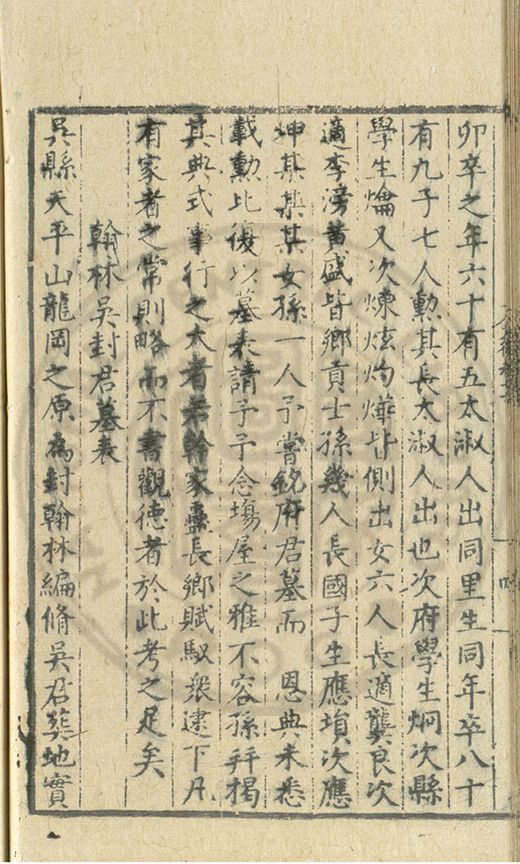 卯卒之年六十有五太淑人出同里生同年卒八十
有九子七人勳其長太淑人出也次府學生炯次縣
學生爚又次煉炫灼燁皆側出女六人長適龔良次
適李滂黄盛皆鄉貢士孫幾人長國子生應塤次應
坤某某某女孫一人予嘗銘府君墓而 恩典未悉
載勳比復以墓表請予予念塲屋之雅不容孫拜揭
其典式事行之大者若幹家蠱長鄉賦馭衆逮下凡
有家者之常則略而不書觀德者於此考之足矣
翰林吳封君墓表
吳縣天平山龍岡之原為封翰林編脩吳君葬地實